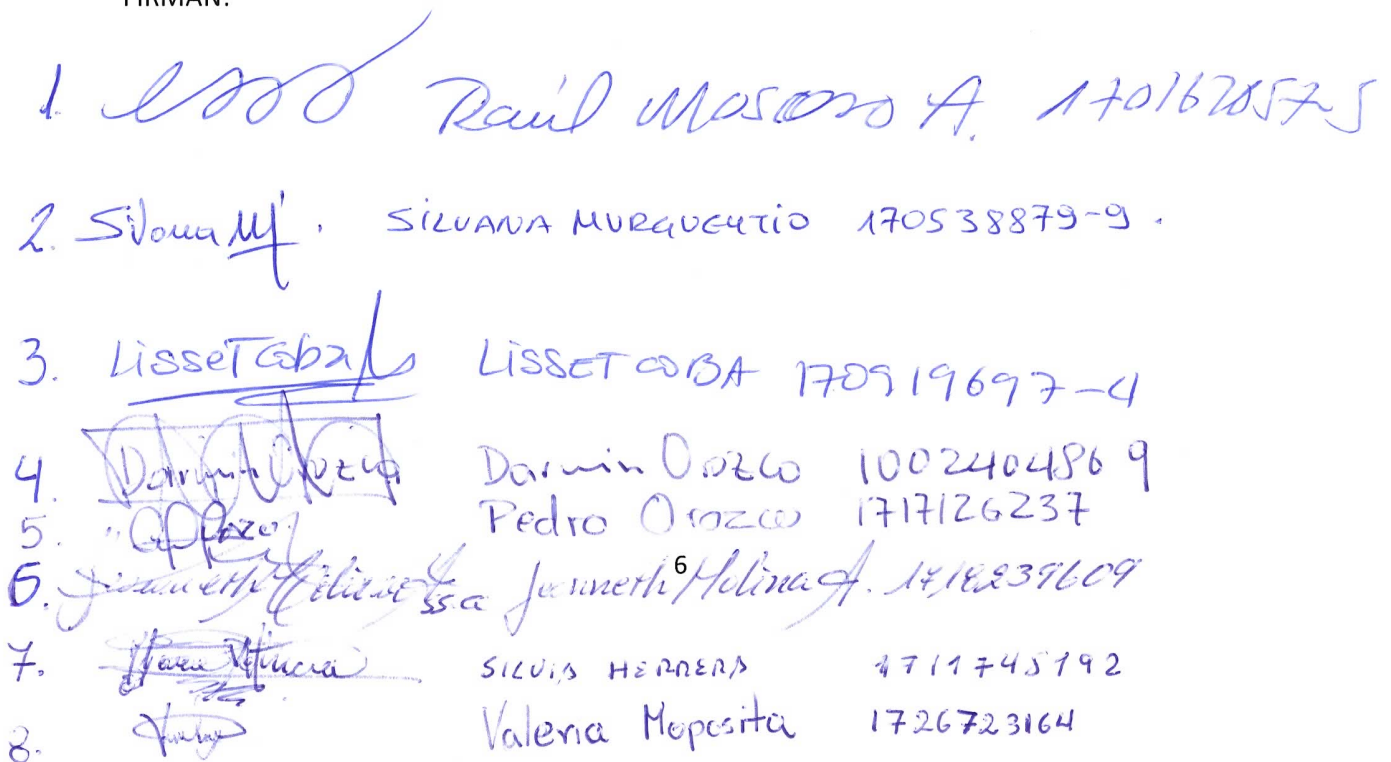 FIRMAN:
1. Raúl Moscoso A. 1701620575
2. Silvana M. SILVANA MURGUEYTIO 170538879-9.
3. Lisset Coba LISSET COBA 170919697-4
4. Darwin Orozco Darwin Orozco 1002404869
5. Pedro Orozco 1717126237
6. Janneth Molina A.
6
7. SILVIA HERRERA 1711745192
8. Valeria Moposita 1726723164